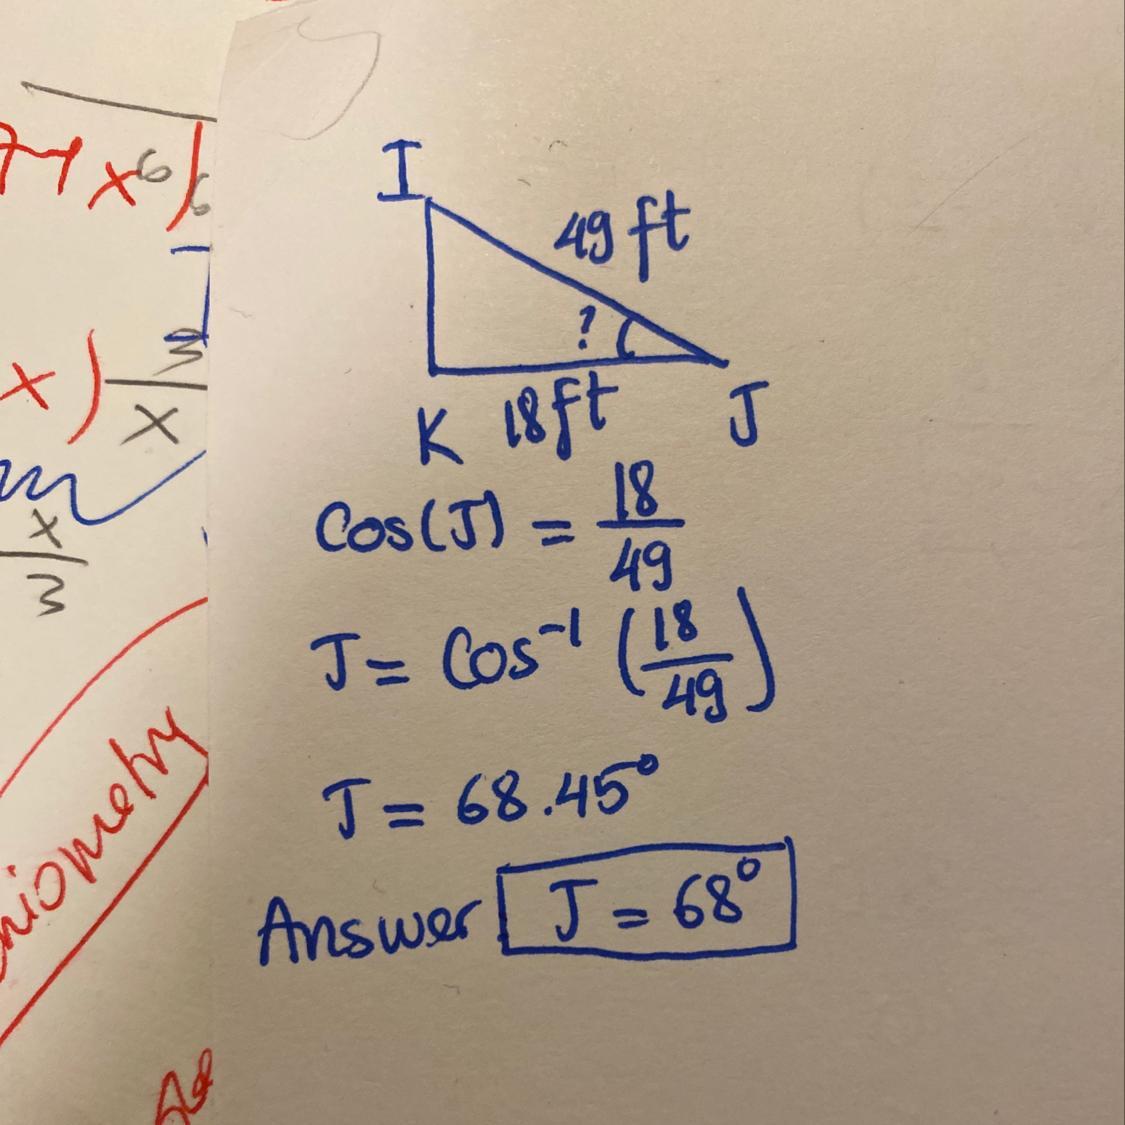 I
49 ft
?
K 18 ft J
Cos(J) = 18/49
J = Cos⁻¹ (18/49)
J = 68.45°
Answer J = 68°
x⁶)
6
x) 3/x
x/3